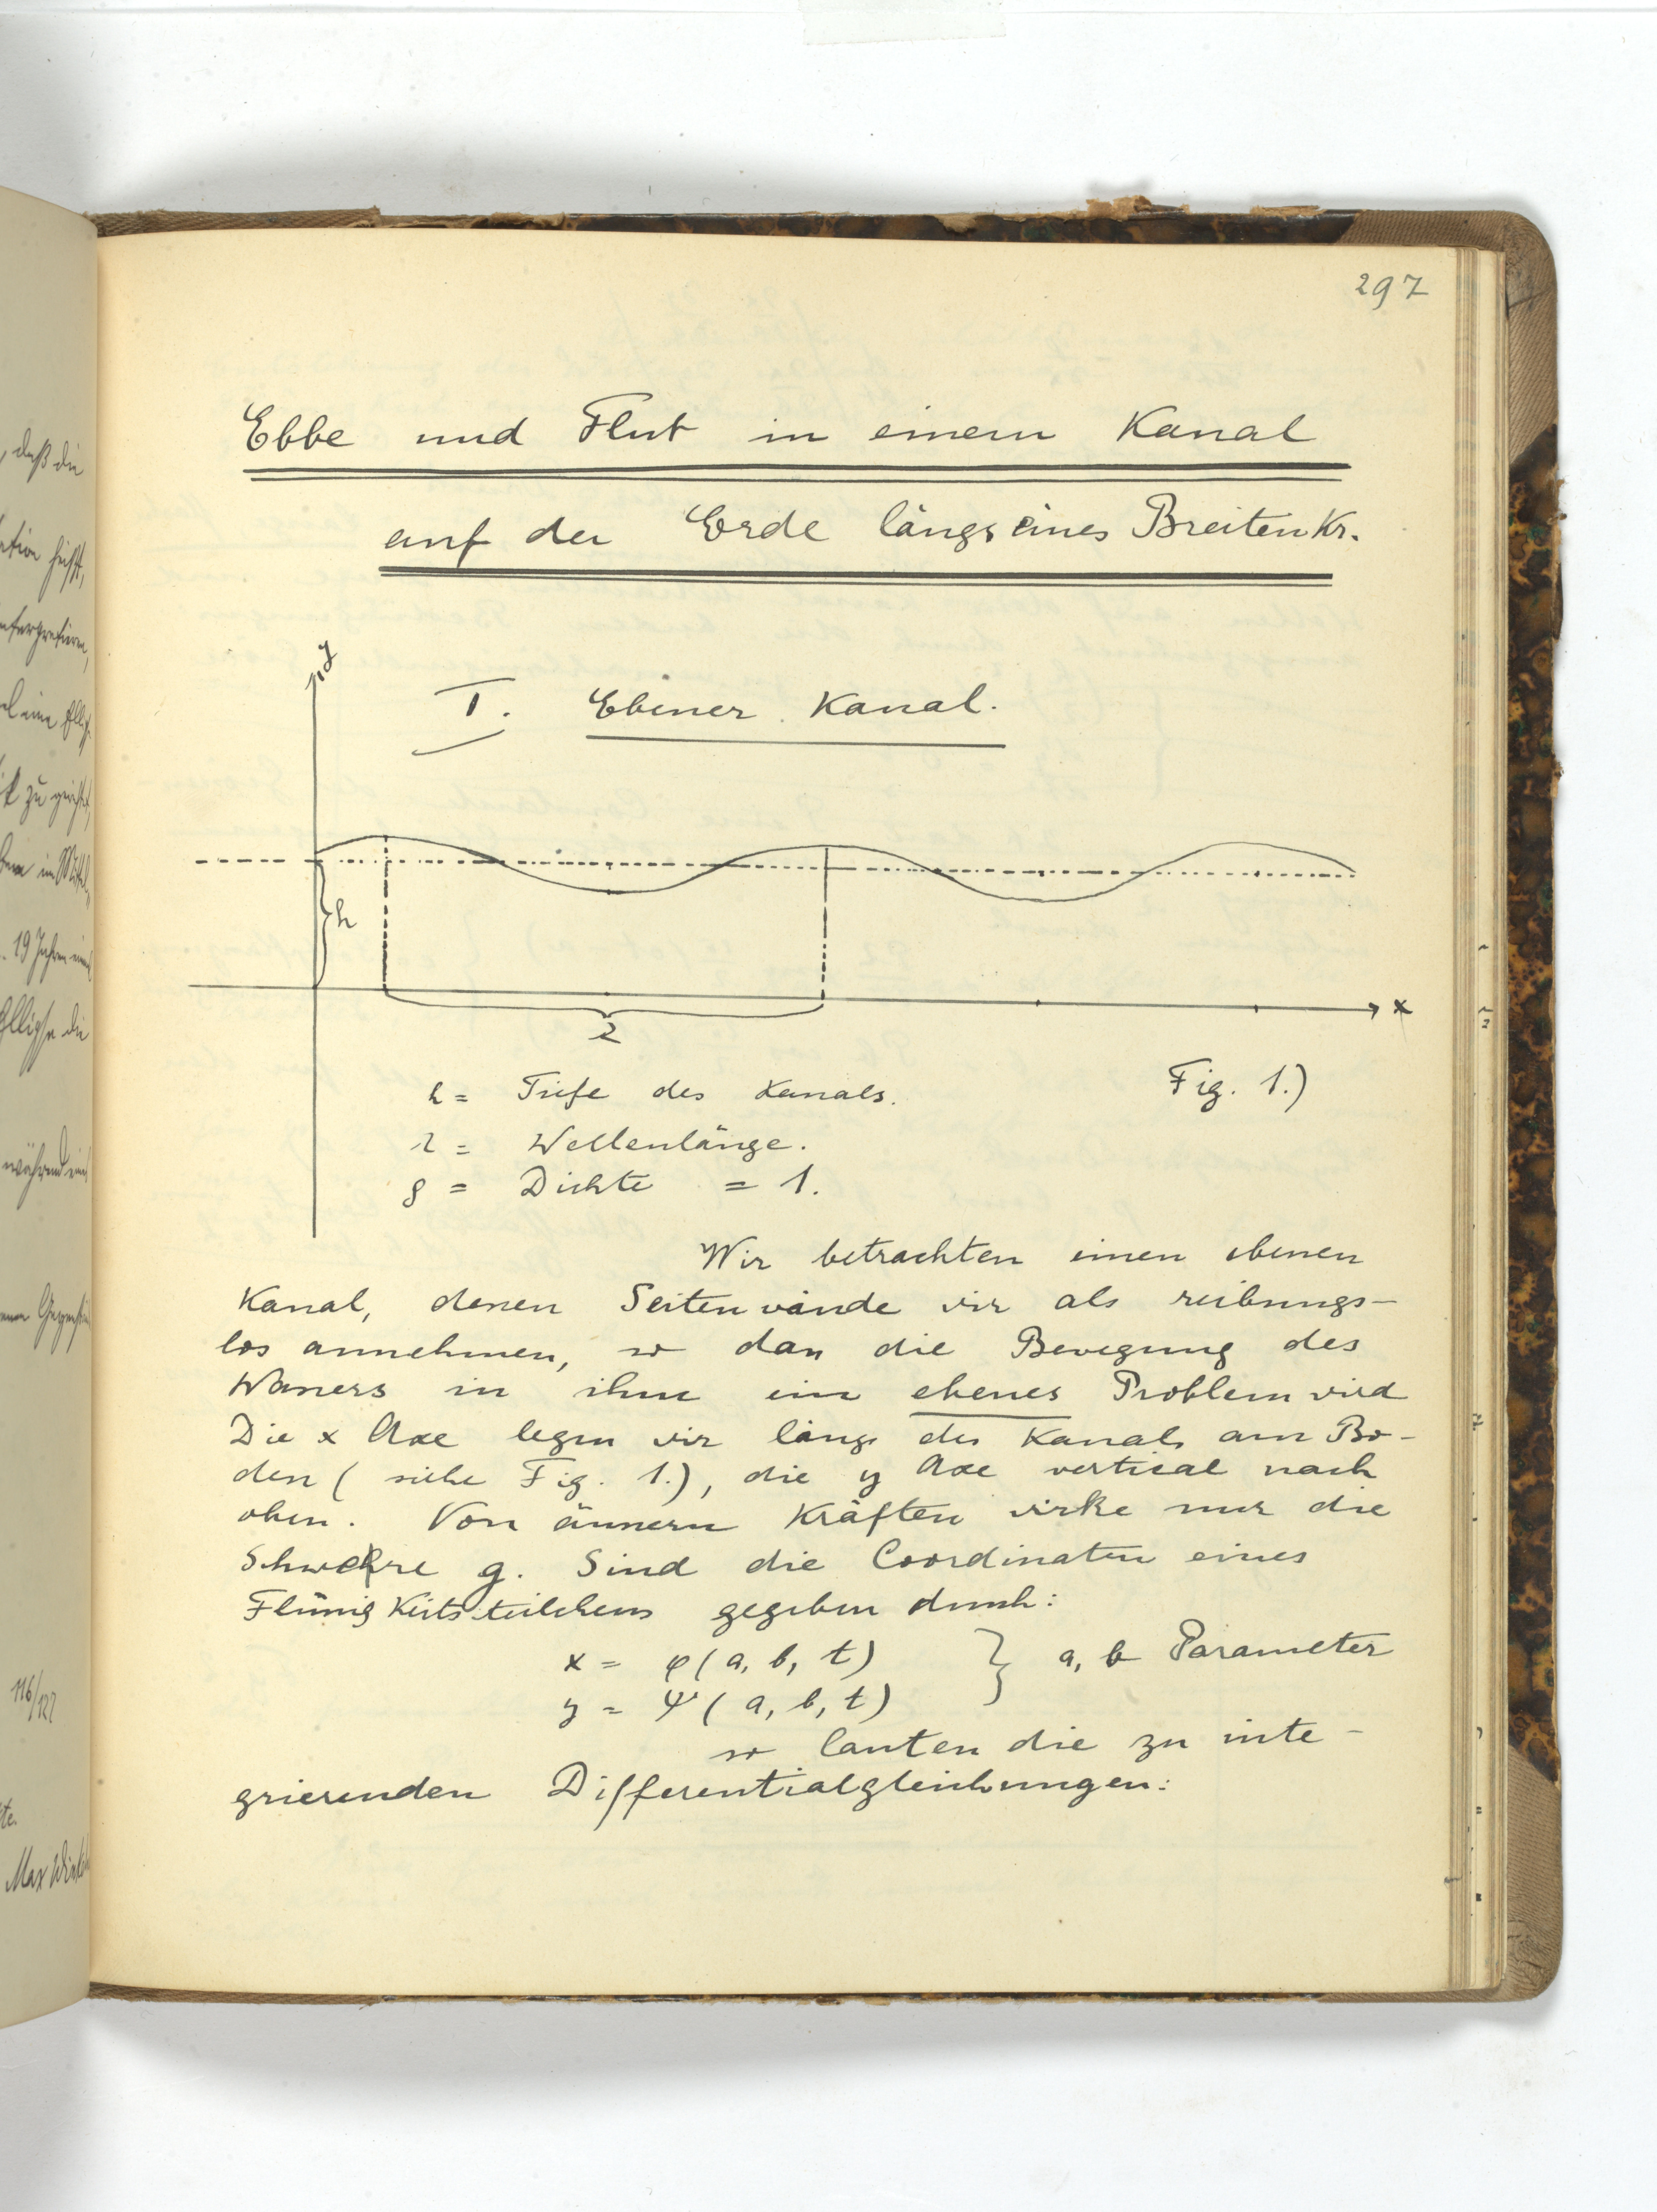 297
Ebbe und Flut in einem Kanal
auf der Erde längs eines Breitenkr.
y
I. Ebener Kanal.
h
λ
x
h = Tiefe des Kanals.
Fig. 1.)
λ = Wellenlänge.
ρ = Dichte = 1.
Wir betrachten einen ebenen
Kanal, denen Seitenwände wir als reibungs-
los annehmen, so dass die Bewegung des
Wassers in ihm ein ebenes Problem wird
Die x Axe legen wir längs des Kanals am Bo-
den (siehe Fig. 1.), die y Axe vertical nach
oben. Von äussern Kräften wirke nur die
Schwere g. Sind die Coordinaten eines
Flüssigkeitsteilchens gegeben durch:
x = φ(a, b, t) } a, b Parameter
y = ψ(a, b, t)
so lauten die zu inte-
grierenden Differentialgleichungen:
, daß die
19 Jahren
Ellipse die
während
116/127
Max